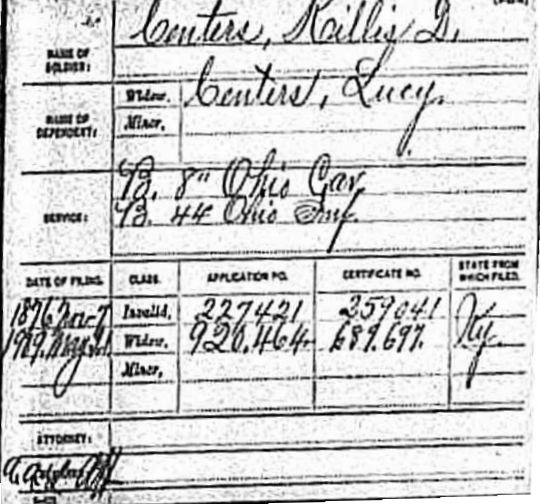 Centers, Killis D.
NAME OF
SOLDIER:
Widow, Centers, Lucy.
NAME OF
DEPENDENT:
Minor,
B. 8" Ohio Cav
SERVICE:
B. 44 Ohio Inf
DATE OF FILING. CLASS. APPLICATION NO. CERTIFICATE NO. STATE FROM
WHICH FILED.
1876 Nov 7 Invalid, 227421 359041 Ky
1909 Widow, 920.464 689.697.
Minor,
ATTORNEY: